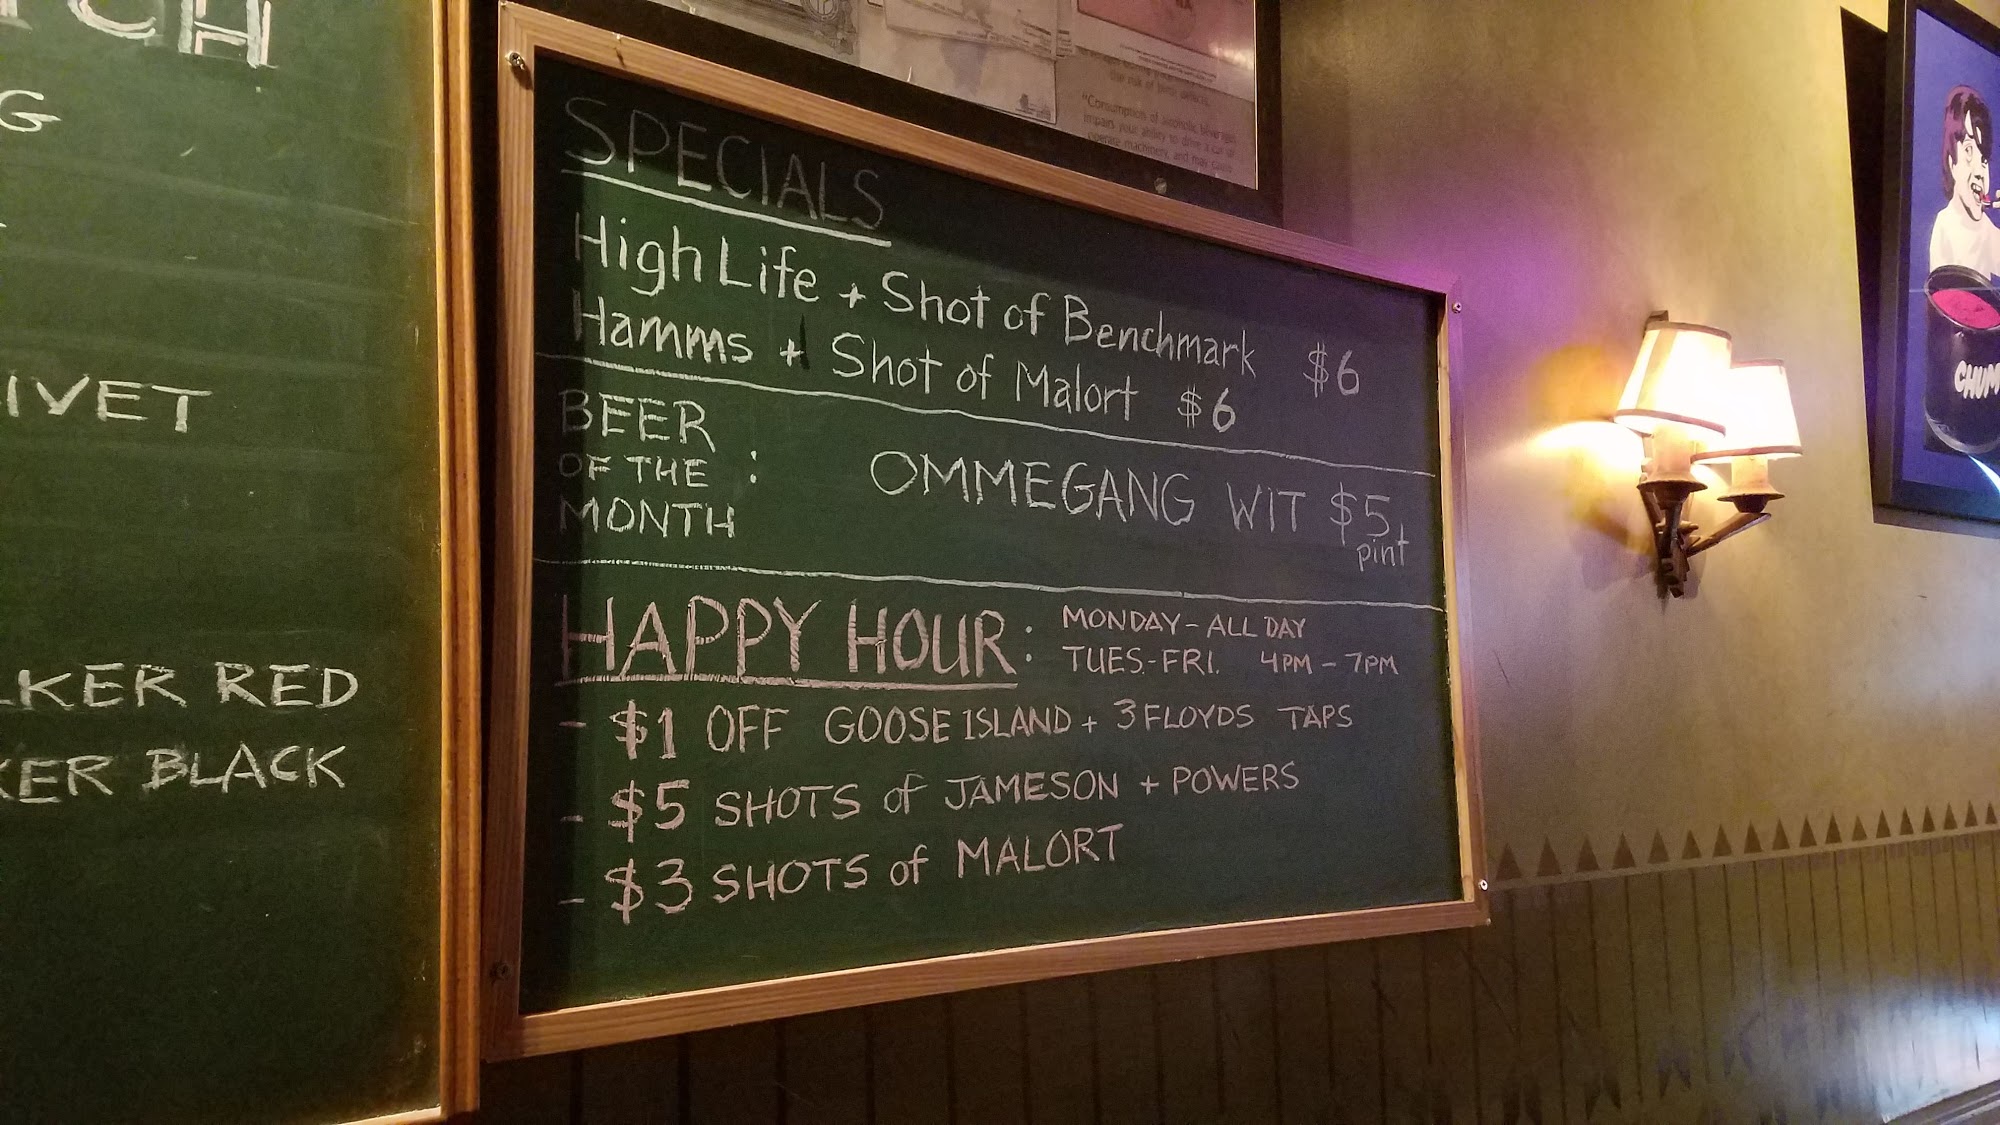 G
IVET
LKER RED
KER BLACK
the risk of birth defects.
"Consumption of alcoholic beverages
impairs your ability to drive a car or
operate machinery, and may cause
SPECIALS
High Life + Shot of Benchmark $6
Hamms + Shot of Malort $6
BEER
OF THE :
MONTH
OMMEGANG WIT $5
pint
HAPPY HOUR:
MONDAY - ALL DAY
TUES.-FRI. 4PM - 7PM
- $1 OFF GOOSE ISLAND + 3 FLOYDS TAPS
- $5 SHOTS of JAMESON + POWERS
- $3 SHOTS of MALORT
CHUM